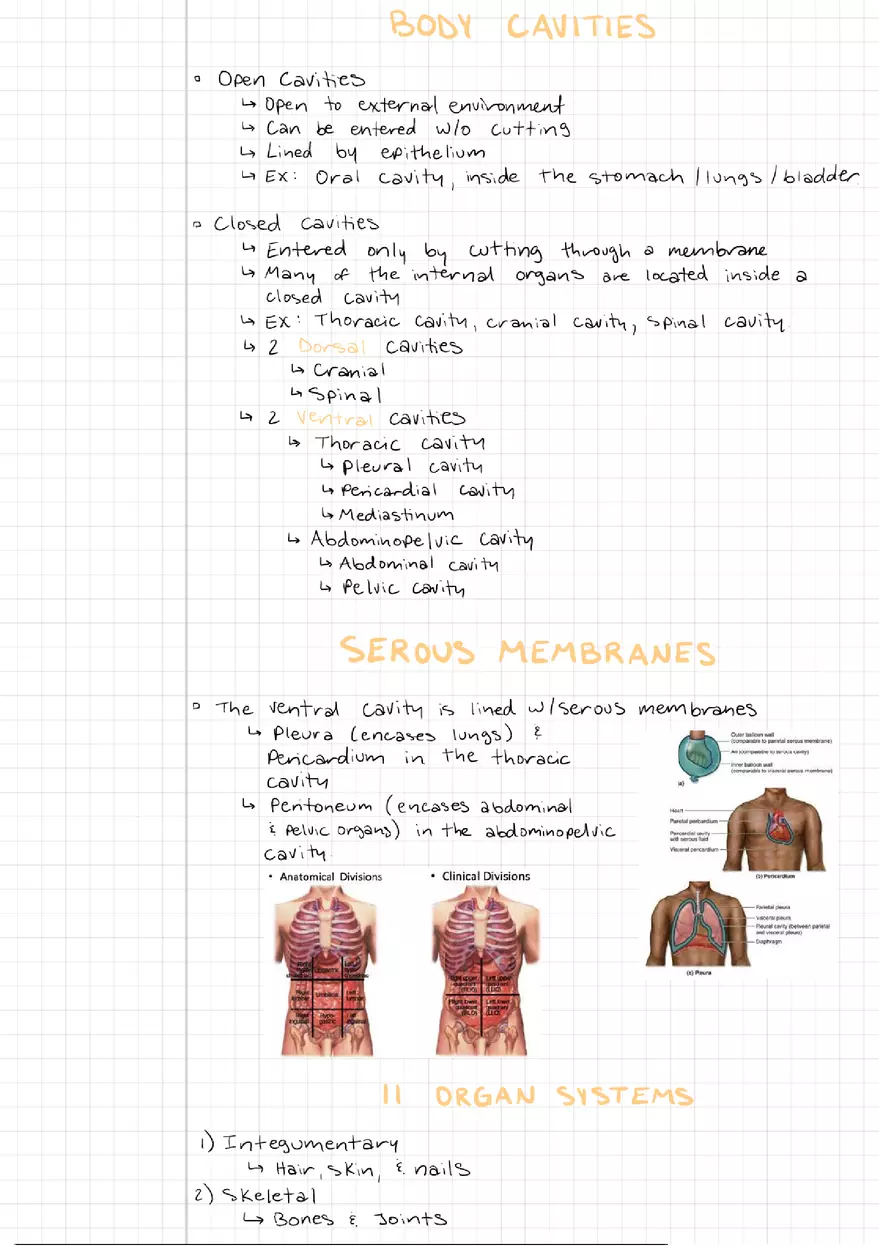 BODY CAVITIES
▫ Open Cavities
↳ Open to external environment
↳ Can be entered w/o cutting
↳ Lined by epithelium
↳ Ex: Oral cavity, inside the stomach / lungs / bladder
▫ Closed cavities
↳ Entered only by cutting through a membrane
↳ Many of the internal organs are located inside a
closed cavity
↳ Ex: Thoracic cavity, cranial cavity, spinal cavity
↳ 2 Dorsal cavities
↳ Cranial
↳ Spinal
↳ 2 Ventral cavities
↳ Thoracic cavity
↳ Pleural cavity
↳ Pericardial cavity
↳ Mediastinum
↳ Abdominopelvic cavity
↳ Abdominal cavity
↳ Pelvic cavity
SEROUS MEMBRANES
▫ The ventral cavity is lined w/serous membranes
↳ Pleura (encases lungs) &
Pericardium in the thoracic
cavity
↳ Peritoneum (encases abdominal
& pelvic organs) in the abdominopelvic
cavity
Outer balloon wall
(comparable to parietal serous membrane)
Air (comparable to serous cavity)
Inner balloon wall
(comparable to visceral serous membrane)
(a)
Heart
Parietal pericardium
Pericardial cavity
with serous fluid
Visceral pericardium
(b) Pericardium
Parietal pleura
Visceral pleura
Pleural cavity (between parietal
and visceral pleura)
Diaphragm
(c) Pleura
• Anatomical Divisions
• Clinical Divisions
Umbilical
Right upper
quadrant
(RUQ)
Left upper
quadrant
(LUQ)
Right lower
quadrant
(RLQ)
Left lower
quadrant
(LLQ)
11 ORGAN SYSTEMS
1) Integumentary
↳ Hair, skin, & nails
2) Skeletal
↳ Bones & Joints